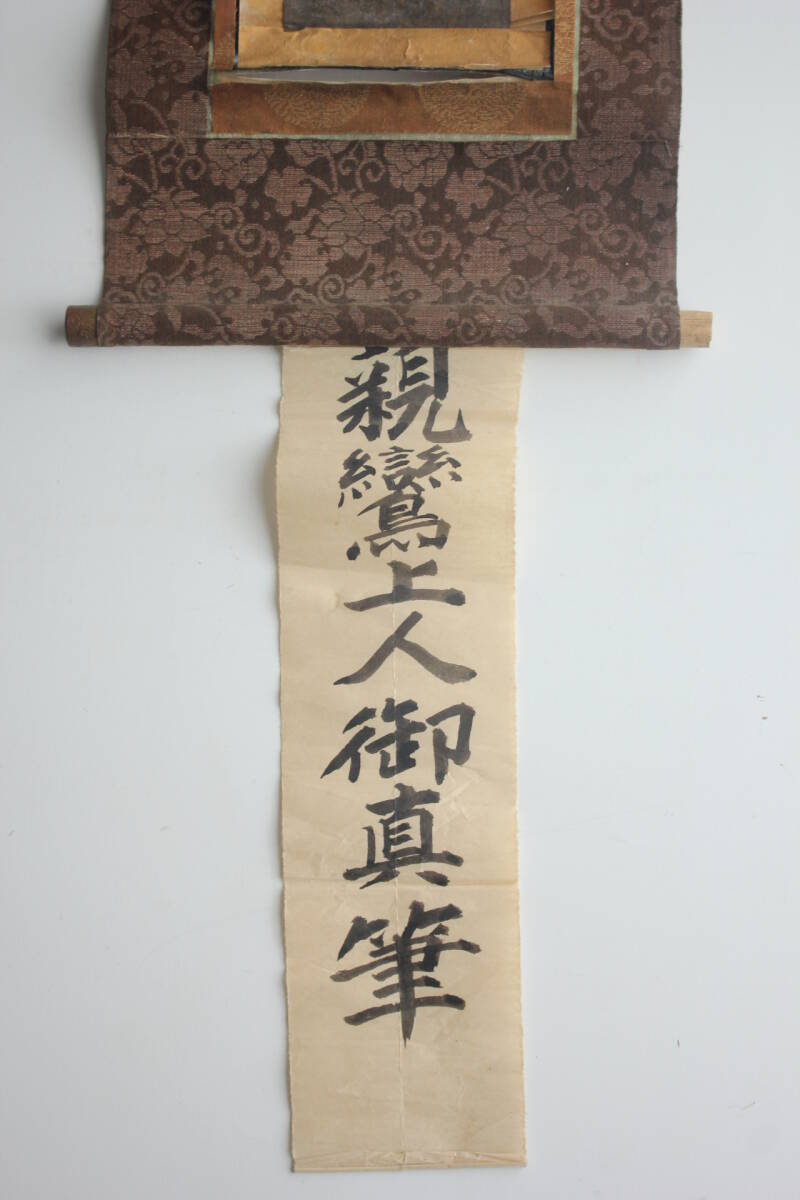 親鸞上人御真筆